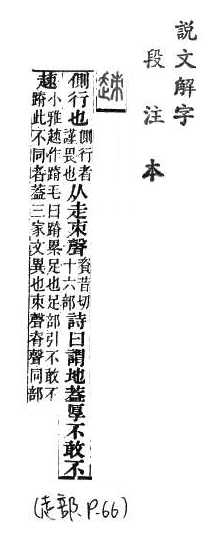 說文解字
段注本
趚
側行也 側行者謹畏也 从走朿聲 資昔切十六部 詩曰謂地葢厚不敢不
趚 小雅趚作蹐毛曰蹐絫足也足部引不敢不蹐此不同者蓋三家文異也朿聲脊聲同部
(走部、P.66)